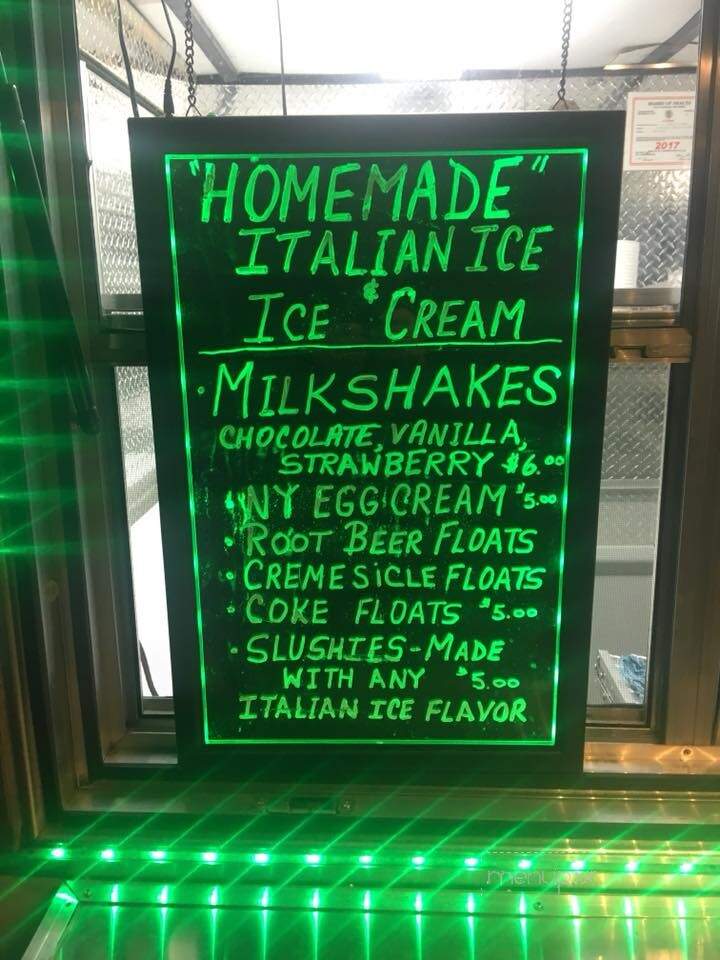 BOARD OF HEALTH
2017
"HOMEMADE"
ITALIAN ICE
&
ICE CREAM
• MILKSHAKES
CHOCOLATE, VANILLA,
STRAWBERRY $6.00
• NY EGG CREAM $5.00
• ROOT BEER FLOATS
• CREMESICLE FLOATS
• COKE FLOATS $5.00
• SLUSHIES - MADE
WITH ANY $5.00
ITALIAN ICE FLAVOR